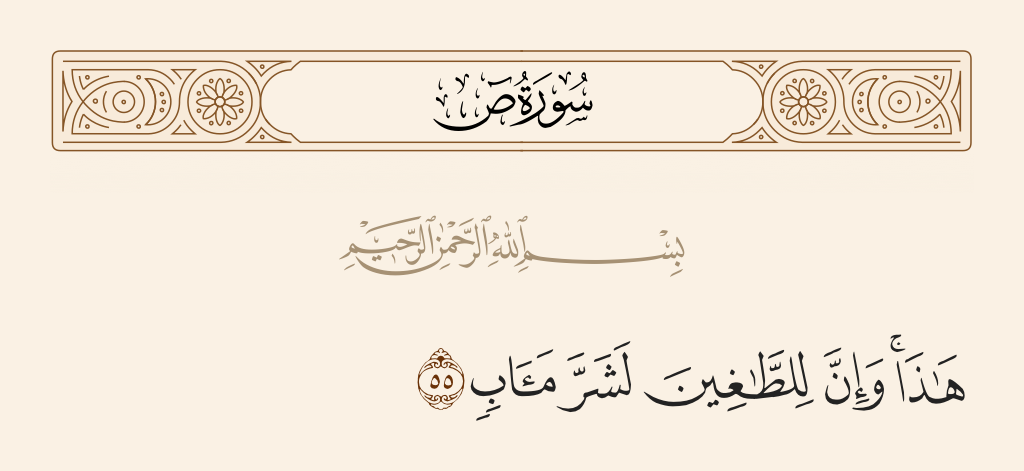 سُورَةُ صٓ
بِسْمِ ٱللَّهِ ٱلرَّحْمَٰنِ ٱلرَّحِيمِ
هَٰذَا ۚ وَإِنَّ لِلطَّٰغِينَ لَشَرَّ مَـَٔابٍ ٥٥